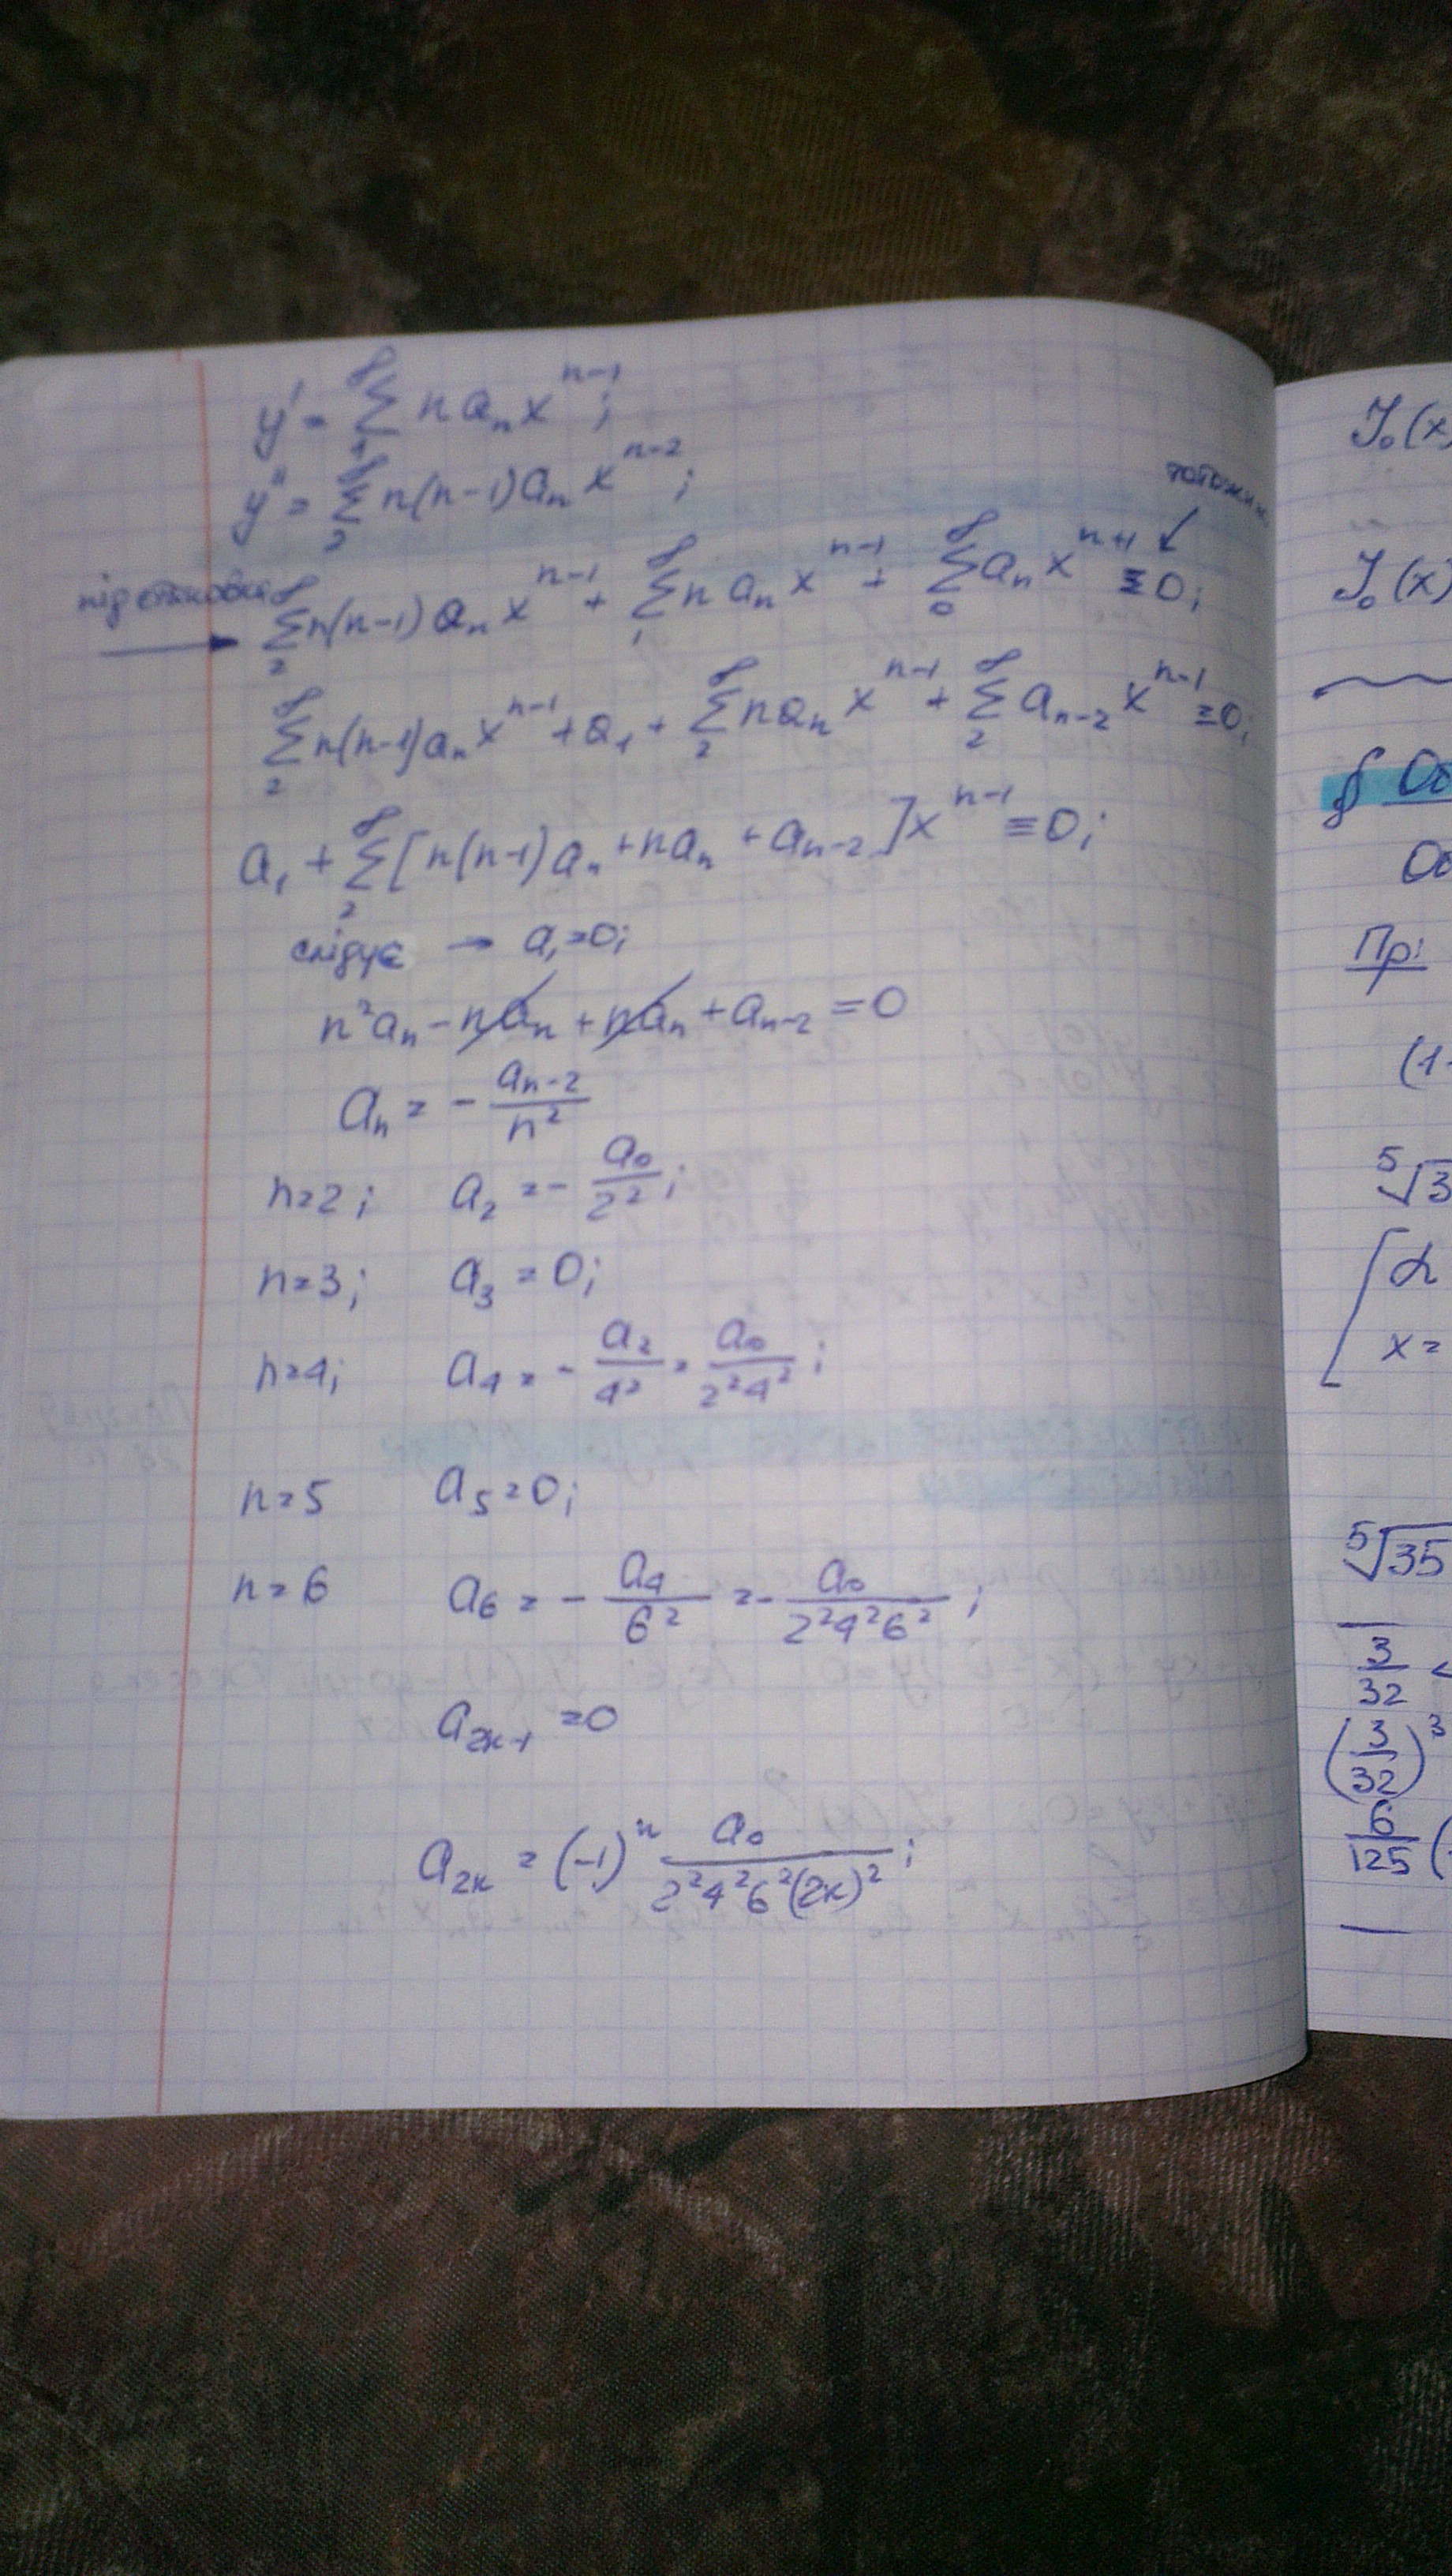 y' = ∑₁^∞ n aₙ x^{n-1};
y'' = ∑₂^∞ n(n-1) aₙ x^{n-2};
підстановка
тотожн
∑₂^∞ n(n-1) aₙ x^{n-1} + ∑₁^∞ n aₙ x^{n-1} + ∑₀^∞ aₙ x^{n+1} ≡ 0;
∑₂^∞ n(n-1) aₙ x^{n-1} + a₁ + ∑₂^∞ n aₙ x^{n-1} + ∑₂^∞ a_{n-2} x^{n-1} ≡ 0;
a₁ + ∑₂^∞ [n(n-1) aₙ + n aₙ + a_{n-2}] x^{n-1} ≡ 0;
слідує → a₁ = 0;
n² aₙ - n aₙ + n aₙ + a_{n-2} = 0
aₙ = - a_{n-2} / n²
n=2; a₂ = - a₀ / 2²;
n=3; a₃ = 0;
n=4; a₄ = - a₂ / 4² = a₀ / 2²4²;
n=5 a₅ = 0;
n=6 a₆ = - a₄ / 6² = - a₀ / 2²4²6²;
a_{2к-1} = 0
a_{2к} = (-1)^к a₀ / 2²4²6²(2к)²;
J₀(x)
J₀(x)
§ Об
Об
Пр:
(1-
⁵√3
[ α
x =
⁵√35
3/32 <
(3/32)³
6/125 (